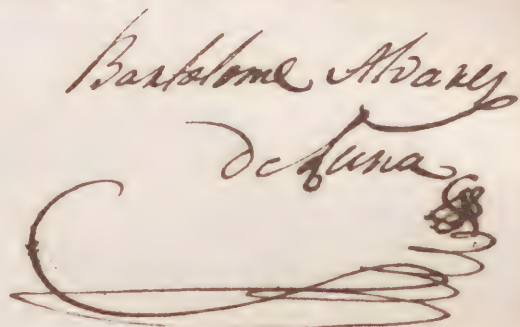 Bartolome Alvarez
de Luna